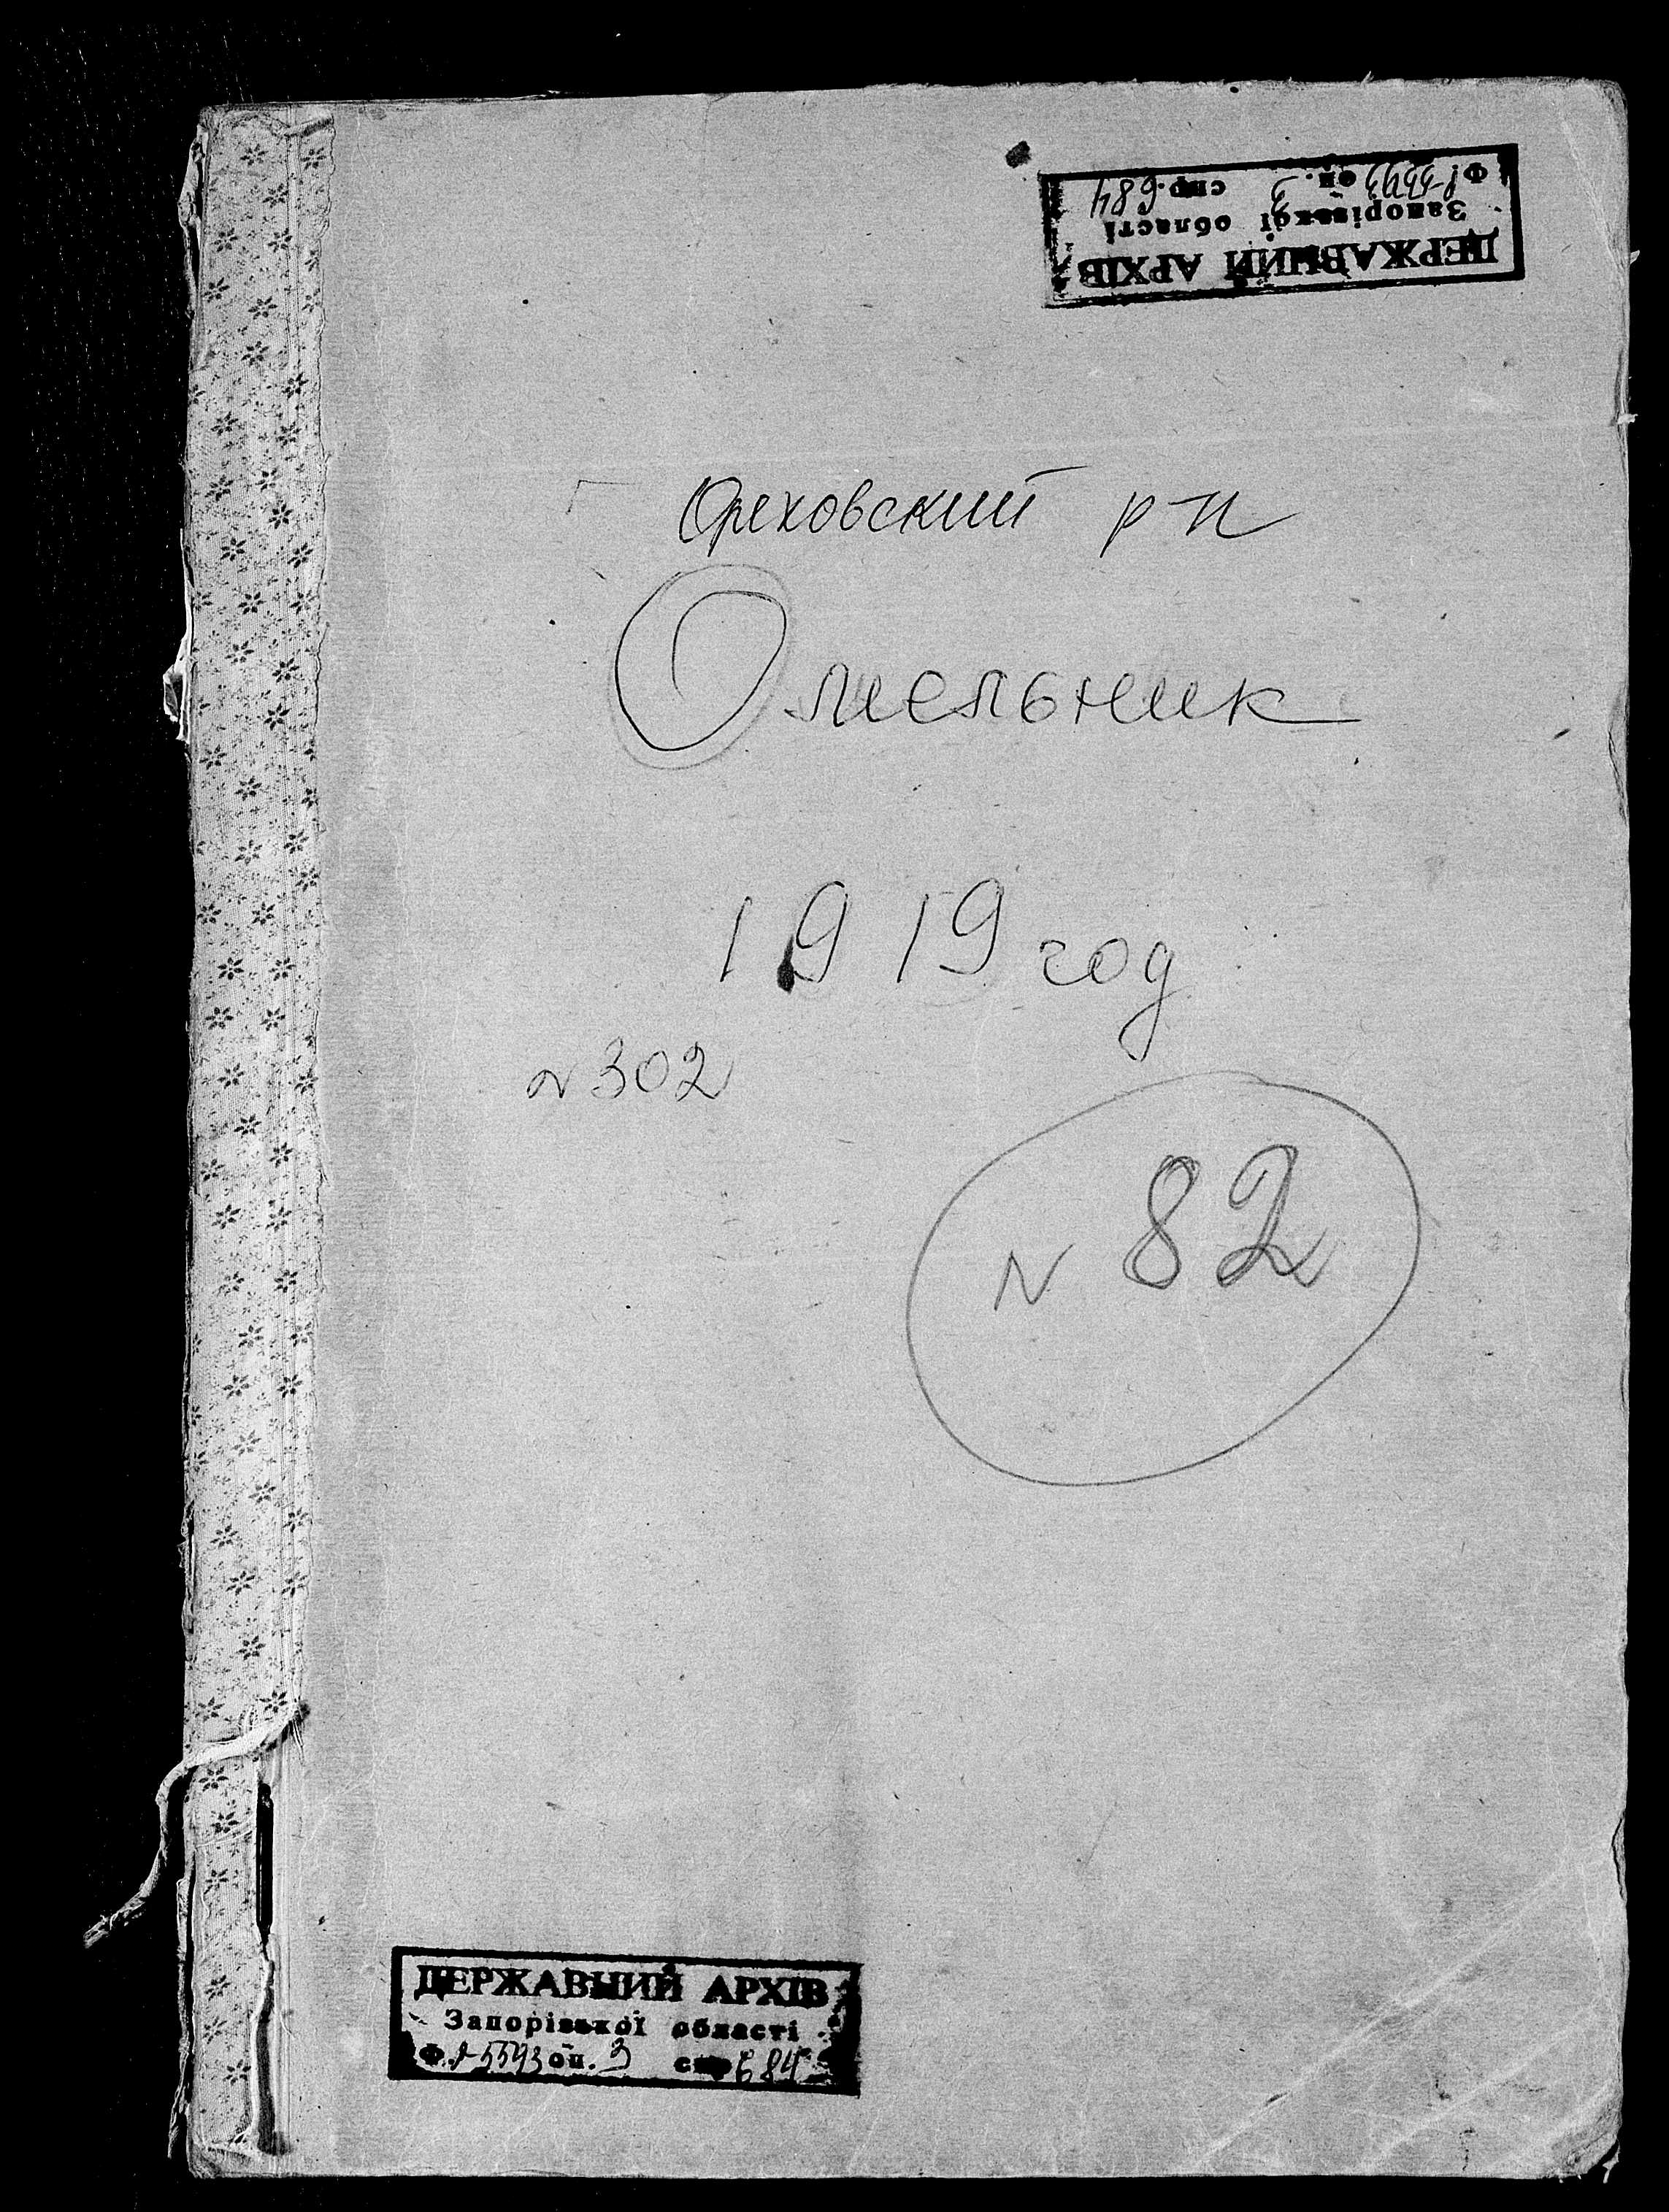 ДЕРЖАВНИЙ АРХІВ
Запорізької області
Ф. Р-5593 оп. 3 спр. 684
Ореховский р-н
Омельник
1919 год
N 302
N 82
ДЕРЖАВНИЙ АРХІВ
Запорізької області
Ф. Р-5593 оп. 3 спр 684